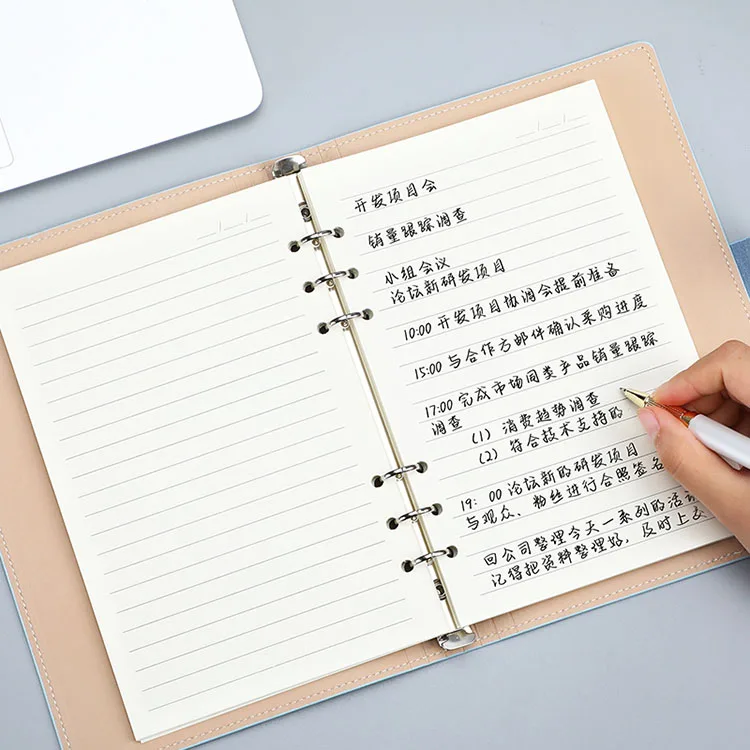 开发项目会
销量跟踪调查
小组会议
论坛新研发项目
10:00 开发项目协调会提前准备
15:00 与合作方邮件确认采购进度
17:00 完成市场同类产品销量跟踪
调查
(1) 消费趋势调查
(2) 符合技术支持的
19: 00 论坛新的研发项目
与观众、粉丝进行合照签名
回公司整理今天一系列的活动
记得把资料整理好，及时上交